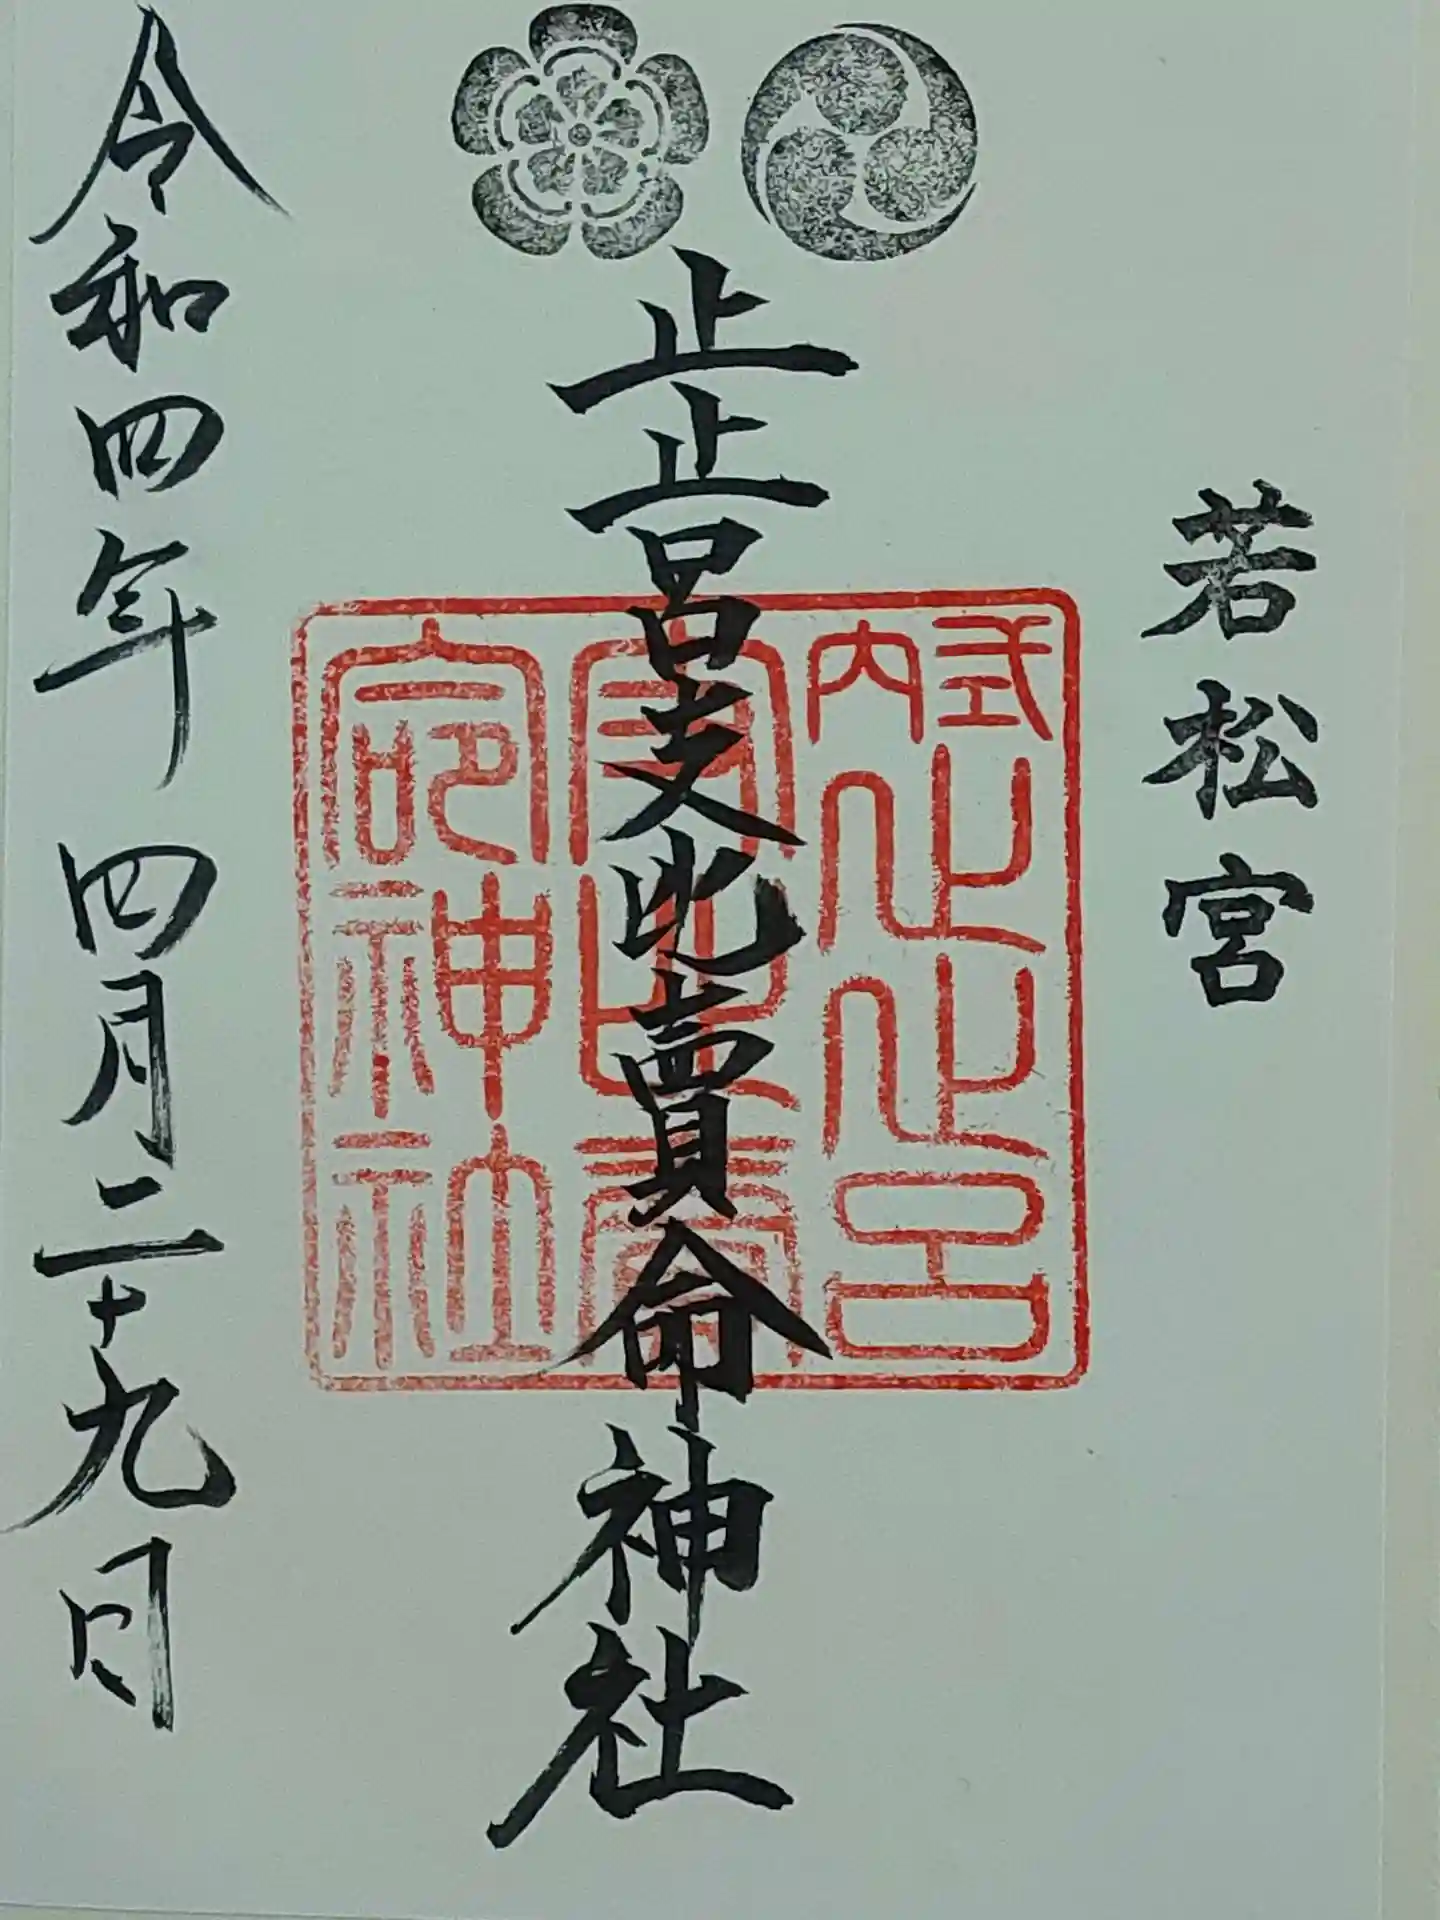 若松宮
止止呂支比賣命神社
式内止止呂
支比賣
命神社
令和四年四月二十九日